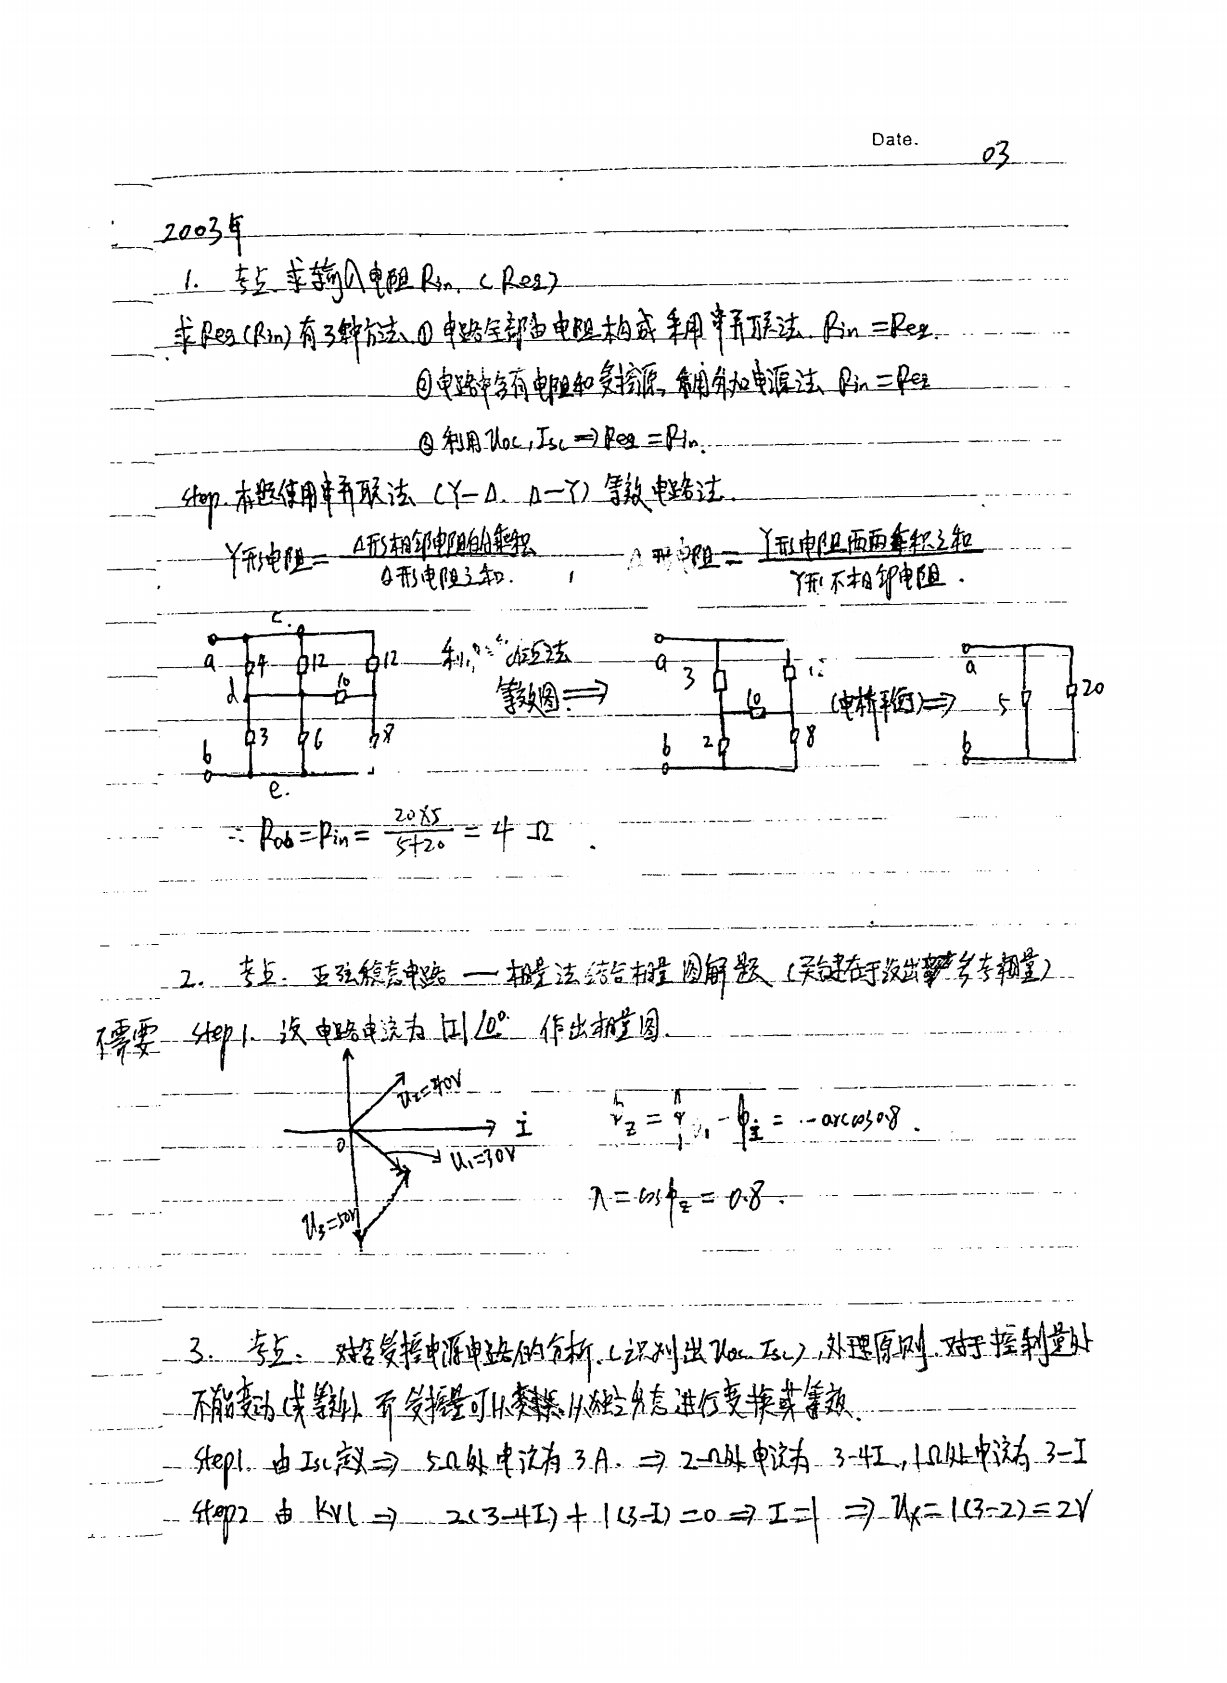 Date.
03
2003年
1. 考点 求输入电阻Rin. (Req)
求Req(Rin)有3种方法 ① 电路全部由电阻构成 采用串并联法. Rin=Req.
② 电路中含有电阻和受控源, 采用外加电源法 Rin=Req
③ 利用Uoc,Isc⇒Req=Rin.
step. 本题使用串并联法 (Y-Δ. Δ-Y) 等效电路法.
Y形电阻= Δ形相邻电阻的乘积 / Δ形电阻之和. , Δ形电阻= Y形电阻两两乘积之和 / Y形不相邻电阻.
c.
a 4 12 12 电位法 a 3 a
d 10 等效图⇒ 10 (电桥平衡)⇒ 5 20
b 3 6 8 b 2 8 b
e.
∴ Rab=Rin= 20×5 / 5+20 = 4 Ω.
2. 考点. 正弦稳态电路 — 相量法结合相量图解题 (关键在于设出参考相量)
不需要 step1. 设电路电流为|I|∠0° 作出相量图.
U2=40V
0 İ = - = -arccos0.8.
U1=30V
λ=cosφz=0.8.
U3=50V
3. 考点. 对含受控电源电路的分析.(识别出Uoc Isc),处理原则.对于控制量处
不能变动(或等效). 而受控量可以 独立 进行变换或等效.
step1. 由Isc定义⇒ 5Ω处电流为3A. ⇒ 2Ω处电流为 3-4I, 1Ω处电流为 3-I
step2 由KVL ⇒ 2(3-4I)+1(3-I)=0⇒I=1 ⇒Ux=1(3-2)=2V